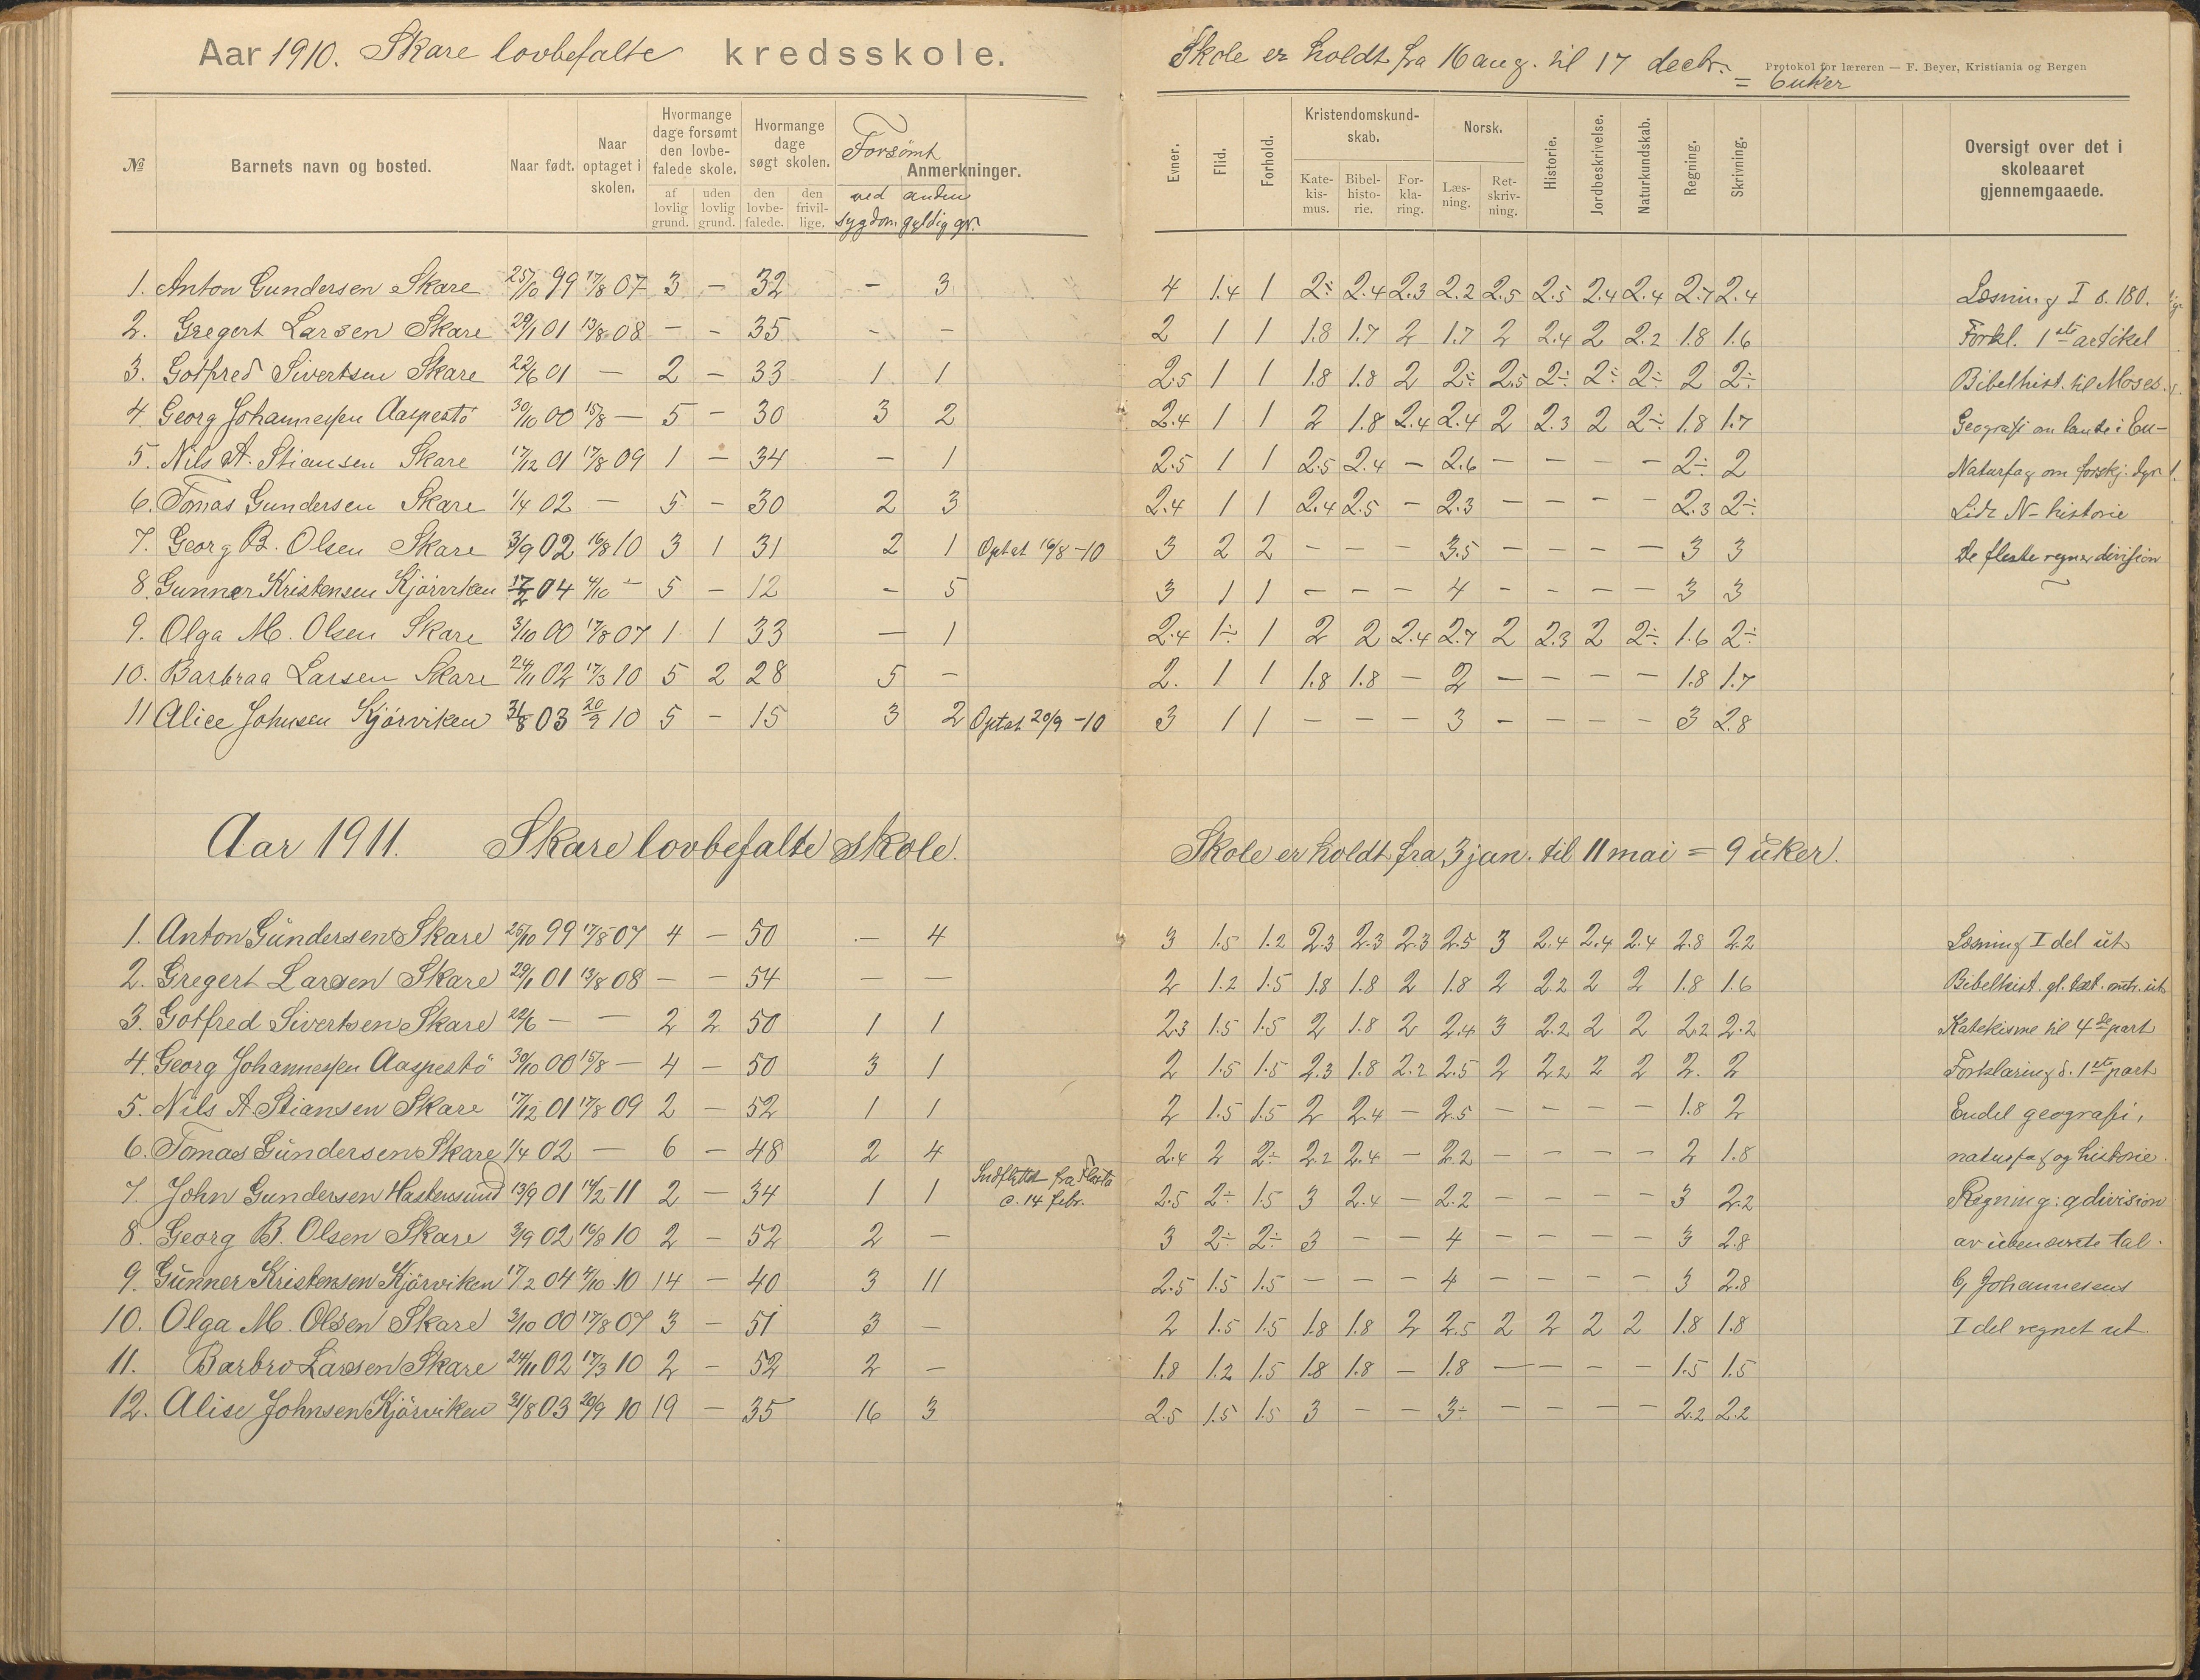 Aar 1910. Skare lovbefalte kredsskole.
Skole er holdt fra 16 aug. til 17 decbr. = 6 uker
Protokol for læreren — F. Beyer, Kristiania og Bergen
№ Barnets navn og bosted. Naar født. Naar optaget i skolen. Hvormange dage forsømt den lovbefalede skole. af lovlig grund. uden lovlig grund. Hvormange dage søgt skolen. den lovbefalede. den frivillige. Forsømt ved sygdom anden gyldig gr. Anmerkninger.
Evner. Flid. Forhold. Kristendomskundskab. Katekismus. Bibelhistorie. Forklaring. Norsk. Læsning. Retskrivning. Historie. Jordbeskrivelse. Naturkundskab. Regning. Skrivning. Oversigt over det i skoleaaret gjennemgaaede.
1. Anton Gundersen Skare 25/10 99 17/8 07 3 – 32 – 3 4 1.4 1 2÷ 2.4 2.3 2.2 2.5 2.5 2.4 2.4 2.7 2.4 Læsning I s. 180.
2. Gregert Larsen Skare 29/1 01 13/8 08 – – 35 – – 2 1 1 1.8 1.7 2 1.7 2 2.4 2 2.2 1.8 1.6 Forkl. 1ste artikel
3. Gotfred Sivertsen Skare 22/6 01 – 2 – 33 1 1 2.5 1 1 1.8 1.8 2 2÷ 2.5 2÷ 2÷ 2÷ 2 2÷ Bibelhist. til Moses.
4. Georg Johannessen Aaspestö 30/10 00 15/8 – 5 – 30 3 2 2.4 1 1 2 1.8 2.4 2.4 2 2.3 2 2÷ 1.8 1.7 Geografi om lande i Eu-
5. Nils A. Stiansen Skare 17/12 01 17/8 09 1 – 34 – 1 2.5 1 1 2.5 2.4 – 2.6 – – – – 2÷ 2 Naturfag om forskj. dyr
6. Tomas Gundersen Skare 1/4 02 – 5 – 30 2 3 2.4 1 1 2.4 2.5 – 2.3 – – – – 2.3 2÷ Lidt N-historie
7. Georg B. Olsen Skare 3/9 02 16/8 10 3 1 31 2 1 Optat 16/8 -10 3 2 2 – – – 3.5 – – – – 3 3 De fleste regner division
8. Gunner Kristensen Kjörviken 17/2 04 4/10 – 5 – 12 – 5 3 1 1 – – – 4 – – – – 3 3
9. Olga M. Olsen Skare 3/10 00 17/8 07 1 1 33 – 1 2.4 1÷ 1 2 2 2.4 2.7 2 2.3 2 2÷ 1.6 2÷
10. Barbraa Larsen Skare 24/11 02 17/3 10 5 2 28 5 – 2. 1 1 1.8 1.8 – 2 – – – – 1.8 1.7
11 Alice Johnsen Kjörviken 31/8 03 20/9 10 5 – 15 3 2 Optat 20/9 -10 3 1 1 – – – 3 – – – – 3 2.8
Aar 1911. Skare lovbefalte skole.
Skole er holdt fra 3 jan. til 11 mai = 9 uker.
1. Anton Gundersen Skare 25/10 99 17/8 07 4 – 50 – 4 3 1.5 1.2 2.3 2.3 2.3 2.5 3 2.4 2.4 2.4 2.8 2.2 Læsning I del ut
2. Gregert Larsen Skare 29/1 01 13/8 08 – – 54 – 2 1.2 1.5 1.8 1.8 2 1.8 2 2.2 2 2 1.8 1.6 Bibelhist. gl. test. omtr. ut
3. Gotfred Sivertsen Skare 22/6 – – 2 2 50 1 1 2.3 1.5 1.5 2 1.8 2 2.4 3 2.2 2 2 2.2 2.2 Katekisme til 4de part
4. Georg Johannessen Aaspestö 30/10 00 15/8 – 4 – 50 3 1 2 1.5 1.5 2.3 1.8 2.2 2.5 2 2.2 2 2 2. 2 Forklaring d. 1ste part
5. Nils A Stiansen Skare 17/12 01 17/8 09 2 – 52 1 1 2 1.5 1.5 2 2.4 – 2.5 – – – – 1.8 2 Endel geografi,
6. Tomas Gundersen Skare 1/4 02 – 6 – 48 2 4 2.4 2 2÷ 2.2 2.4 – 2.2 – – – – 2 1.8 naturfag og historie.
7. John Gundersen Hastensund 13/9 01 14/2 – 11 2 – 34 1 1 Indflyttet fra c. 14 febr. 2.5 2÷ 1.5 3 2.4 – 2.2 – – – – 3 2.2 Regning: g division
8. Georg B. Olsen Skare 3/9 02 16/8 10 2 – 52 2 – 3 2÷ 2÷ 3 – – 4 – – – – 3 2.8 av ubenævnte tal.
9. Gunner Kristensen Kjörviken 17/2 04 4/10 10 14 – 40 3 11 2.5 1.5 1.5 – – – 4 – – – – 3 2.8 G Johannesens
10. Olga M. Olsen Skare 3/10 00 17/8 07 3 – 51 3 – 2 1.5 1.5 1.8 1.8 2 2.5 2 2 2 2 1.8 1.8 I del regnet ut.
11. Barbro Larsen Skare 24/11 02 17/3 10 2 – 52 2 – 1.8 1.2 1.5 1.8 1.8 – 1.8 – – – – 1.5 1.5
12. Alise Johnsen Kjörviken 31/8 03 20/9 10 19 – 35 16 3 2.5 1.5 1.5 3 – – 3÷ – – – – 2.2 2.2